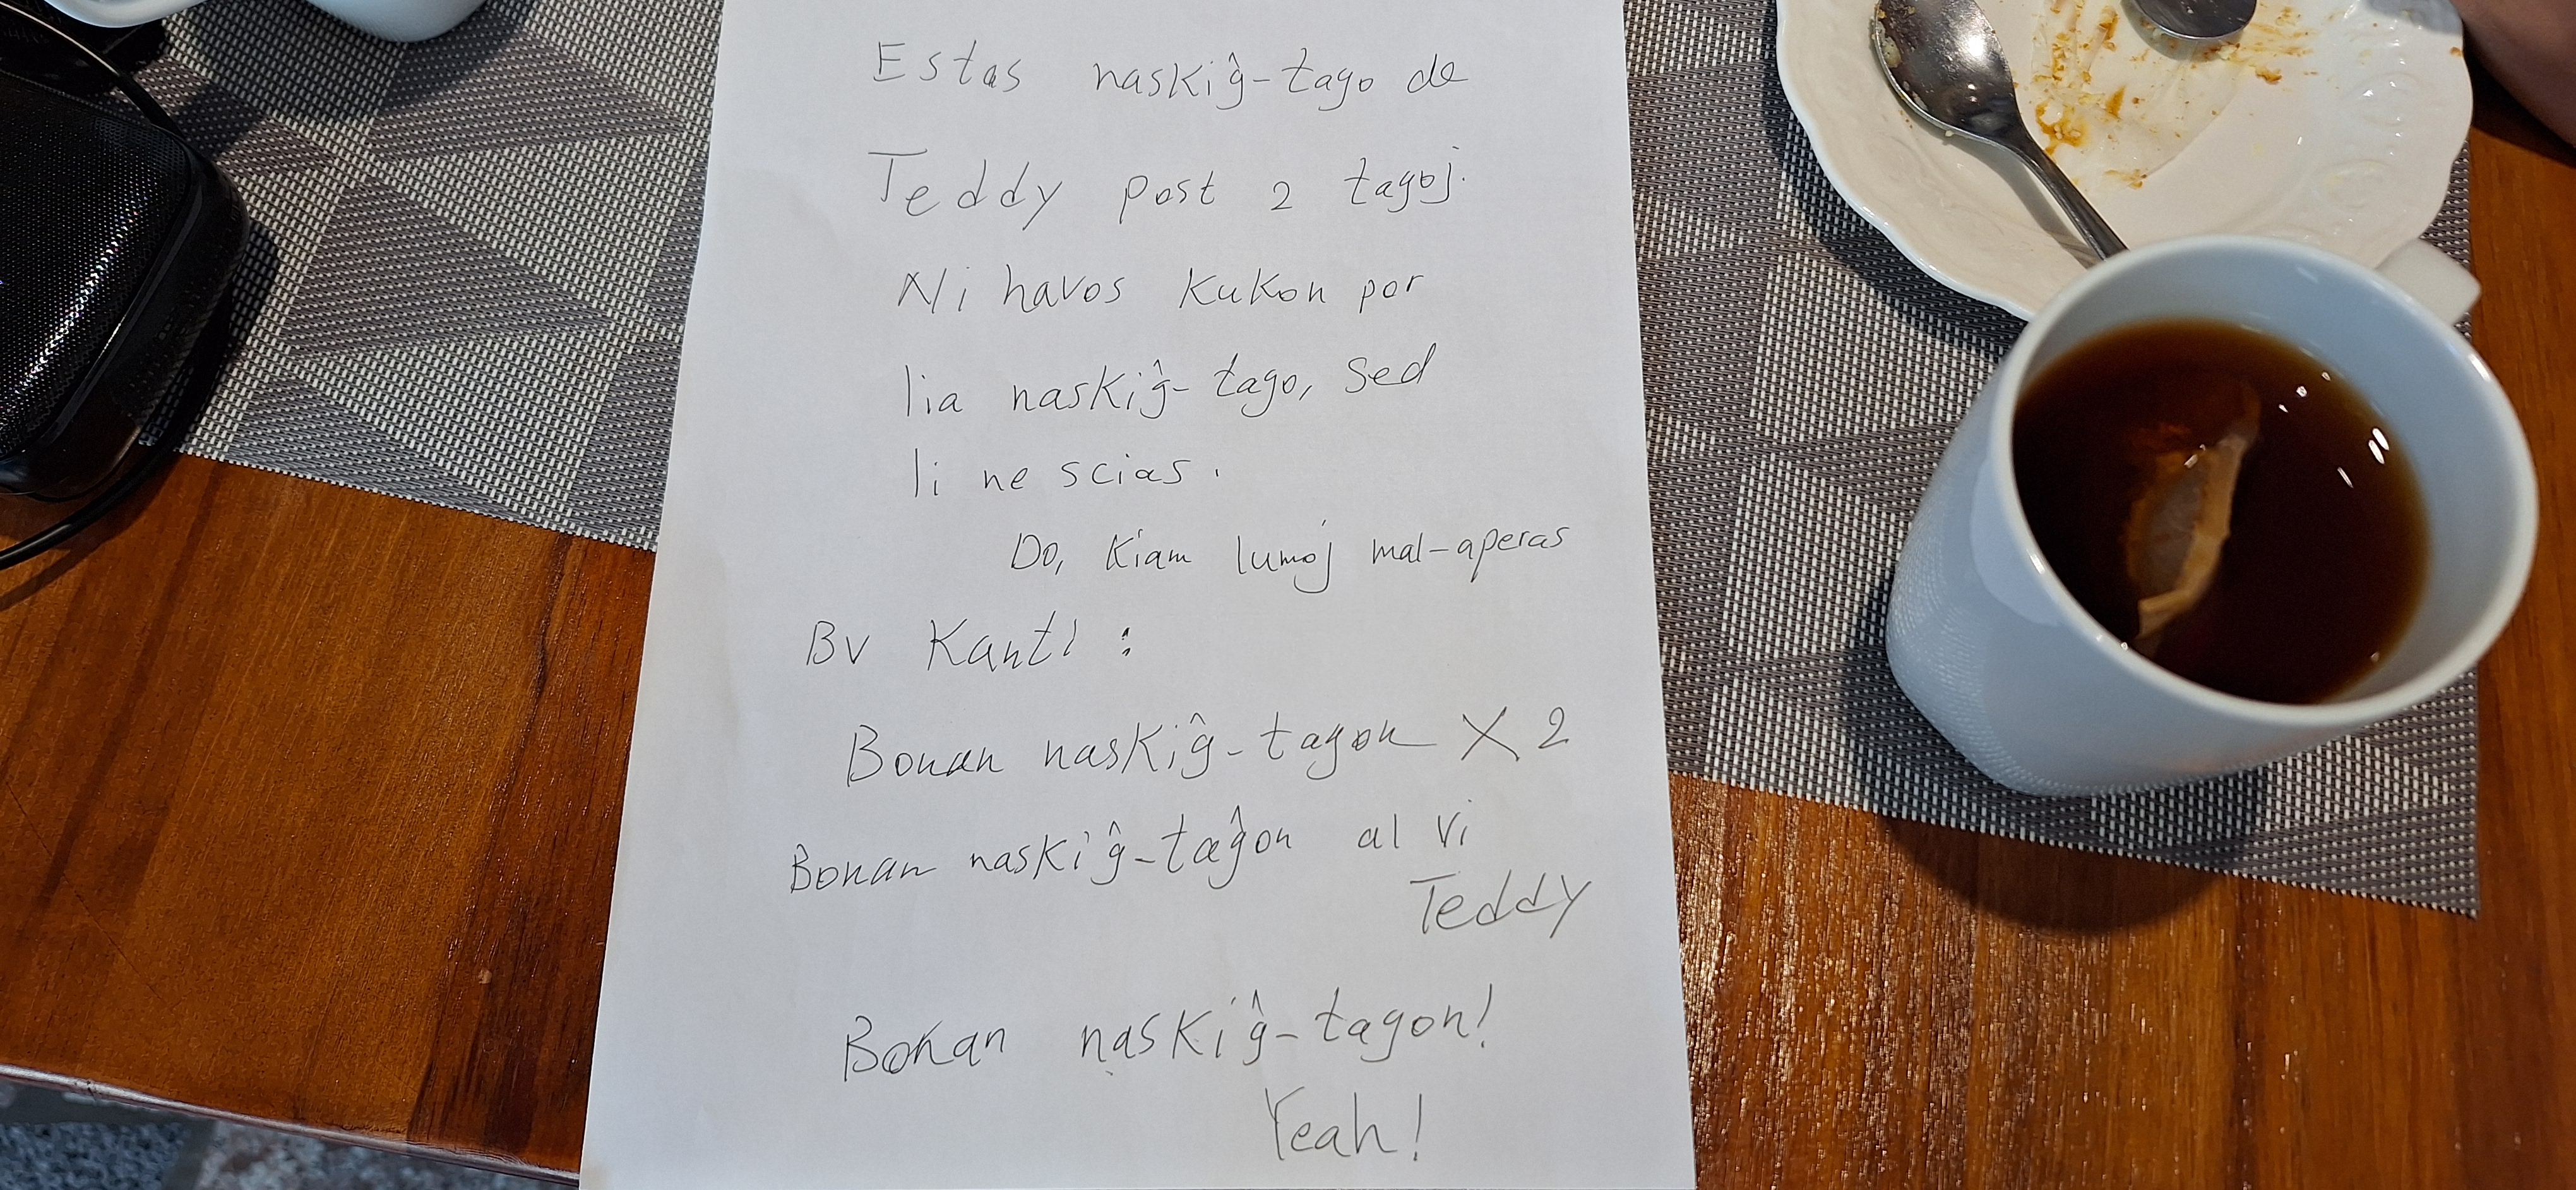 Estas naskiĝ-tago de
Teddy post 2 tagoj.
Ni havos kukon por
lia naskiĝ-tago, sed
li ne scias.
Do, kiam lumoj mal-aperas
Bv kanti:
Bonan naskiĝ-tagon X 2
Bonan naskiĝ-taĝon al vi
Teddy
Bonan naskiĝ-tagon!
Yeah!